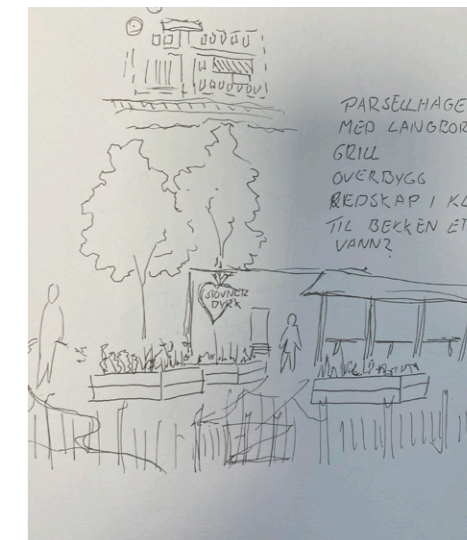 PARSELLHAGE
MED LANGBOR
GRILL
OVERBYGG
REDSKAP I KL
TIL BEKKEN ET
VANN?
STOVNER
DYRK